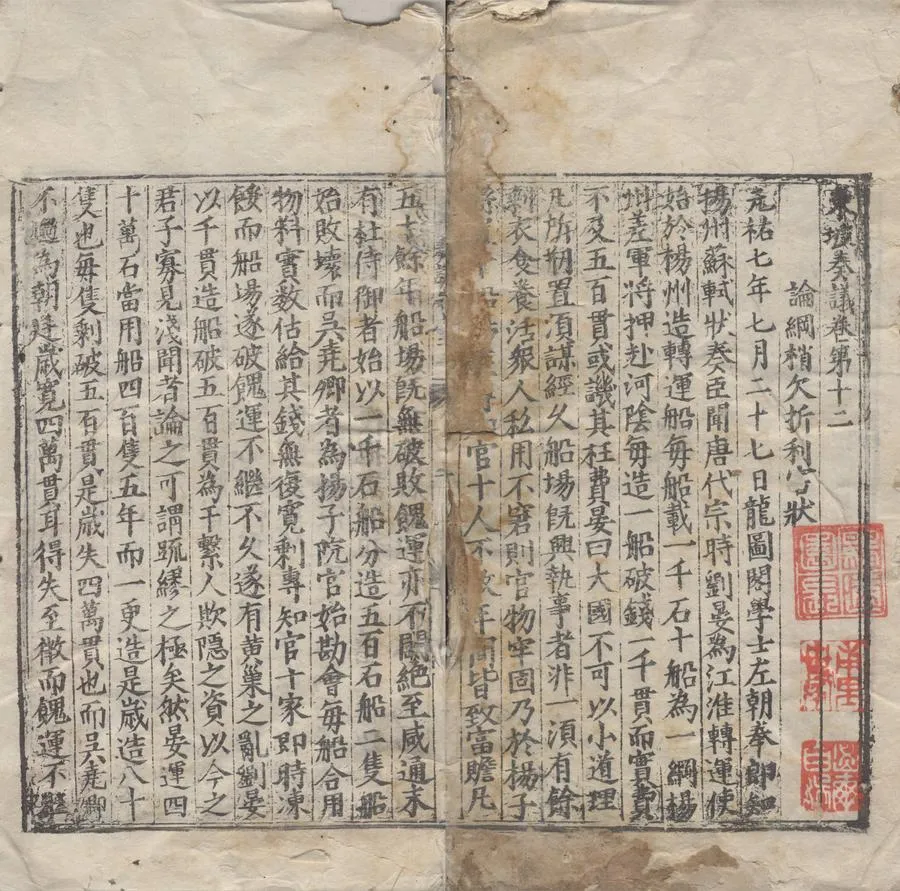 東坡奏議卷第十二
論綱梢欠折利害狀
元祐七年七月二十七日龍圖閣學士左朝奉郎知
揚州蘇軾狀奏臣聞唐代宗時劉晏為江淮轉運使
始於楊州造轉運船每船載一千石十船為一綱楊
州差軍將押赴河陰每造一船破錢一千貫而實費
不及五百貫或譏其枉費晏曰大國不可以小道理
凡所剏置須謀經久船場旣興執事者非一須有餘
剩衣食養活衆人私用不窘則官物牢固乃於楊子
縣 船場 官十人不數年間皆致富贍凡
五十餘年船場旣無破敗餽運亦不闕絕至咸通末
有杜侍御者始以一千石船分造五百石船二隻船
始敗壞而吳堯卿者為揚子院官始勘會每船合用
物料實數估給其錢無復寬剩專知官十家即時凍
餒而船場遂破餽運不繼不久遂有黃巢之亂劉晏
以千貫造船破五百貫為干繫人欺隱之資以今之
君子寡見淺聞者論之可謂疎繆之極矣然晏運四
十萬石當用船四百隻五年而一更造是歲造八十
隻也每隻剩破五百貫是歲失四萬貫也而吳堯卿
不過為朝廷歲寬四萬貫耳得失至微而餽運不繼